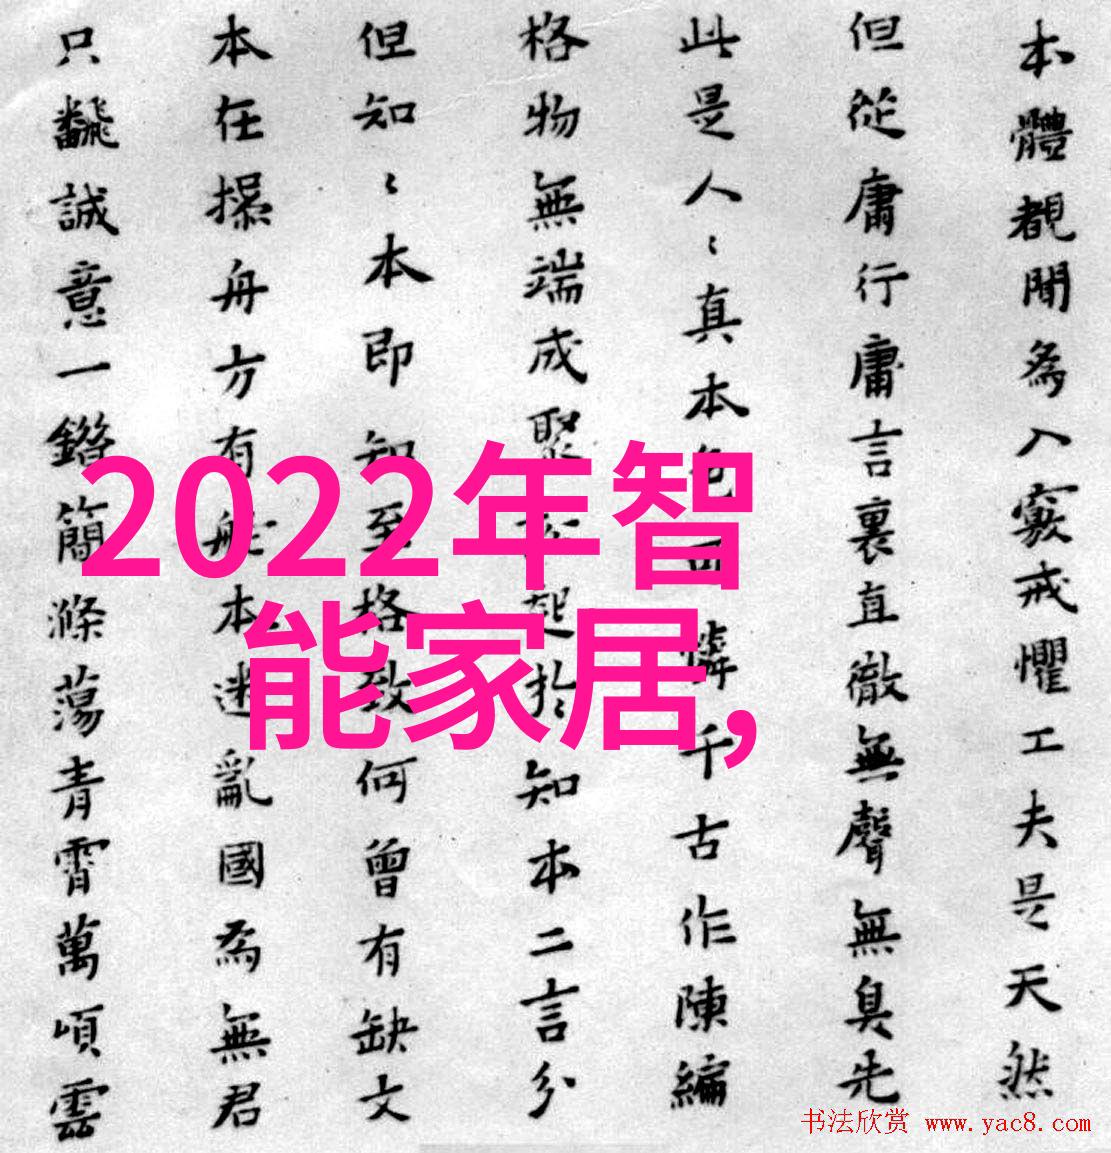 本體覩聞為入竅戒懼工夫是天然
但從庸行庸言裏直徹無聲無臭先
此是人〻真本色可憐千古作陳編
格物無端成聚起於知本二言分
但知〻本即知至格致何曾有缺文
本在操舟方有舵本迷亂國為無君
只飜誠意一鐕簡滌蕩青霄萬頃雲
2022年智
能家居,
书法欣赏 www.yac8.com